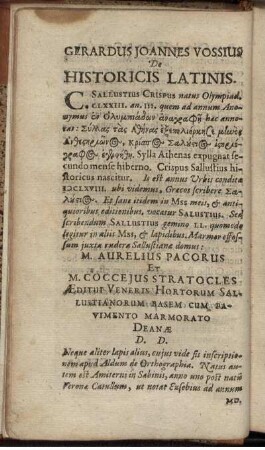 GERARDUS JOANNES VOSSIUS
De
HISTORICIS LATINIS.
C. SALLUSTIUS CRISPUS natus Olympiad.
CLXXIII. an. III. quem ad annum Ano-
nymus ἐν Ὀλυμπιάδων ἀναγραφῇ hæc anno-
tat: Σύλλας τὰς Ἀθήνας
Sylla Athenas expugnat se-
cundo mense hiberno. Crispus Sallustius hi-
storicus nascitur. Is est annus Urbis conditæ
DCLXVIII. ubi videmus, Græcos scribere Σα-
λύστιος. Et sane itidem in Mss meis, & anti-
quoribus editionibus, vocatur SALUSTIUS. Sed
scribendum SALLUSTIUS gemino LL. quomodo
legitur in aliis Mss, & lapidibus. Marmor effos-
sum juxta rudera Sallustianæ domus:
M. AURELIUS PACORUS
ET
M. COCCEJUS STRATOCLES
ÆDITUI VENERIS HORTORUM SAL-
LUSTIANORUM BASEM CUM PA-
VIMENTO MARMORATO
DEANÆ
D. D.
Neque aliter lapis alius, cujus vide sis inscriptio-
nem apud Aldum de Orthographia. Natus au-
tem est Amiterni in Sabinis, anno uno post natum
Veronæ Catullum, ut notat Eusebius ad annum